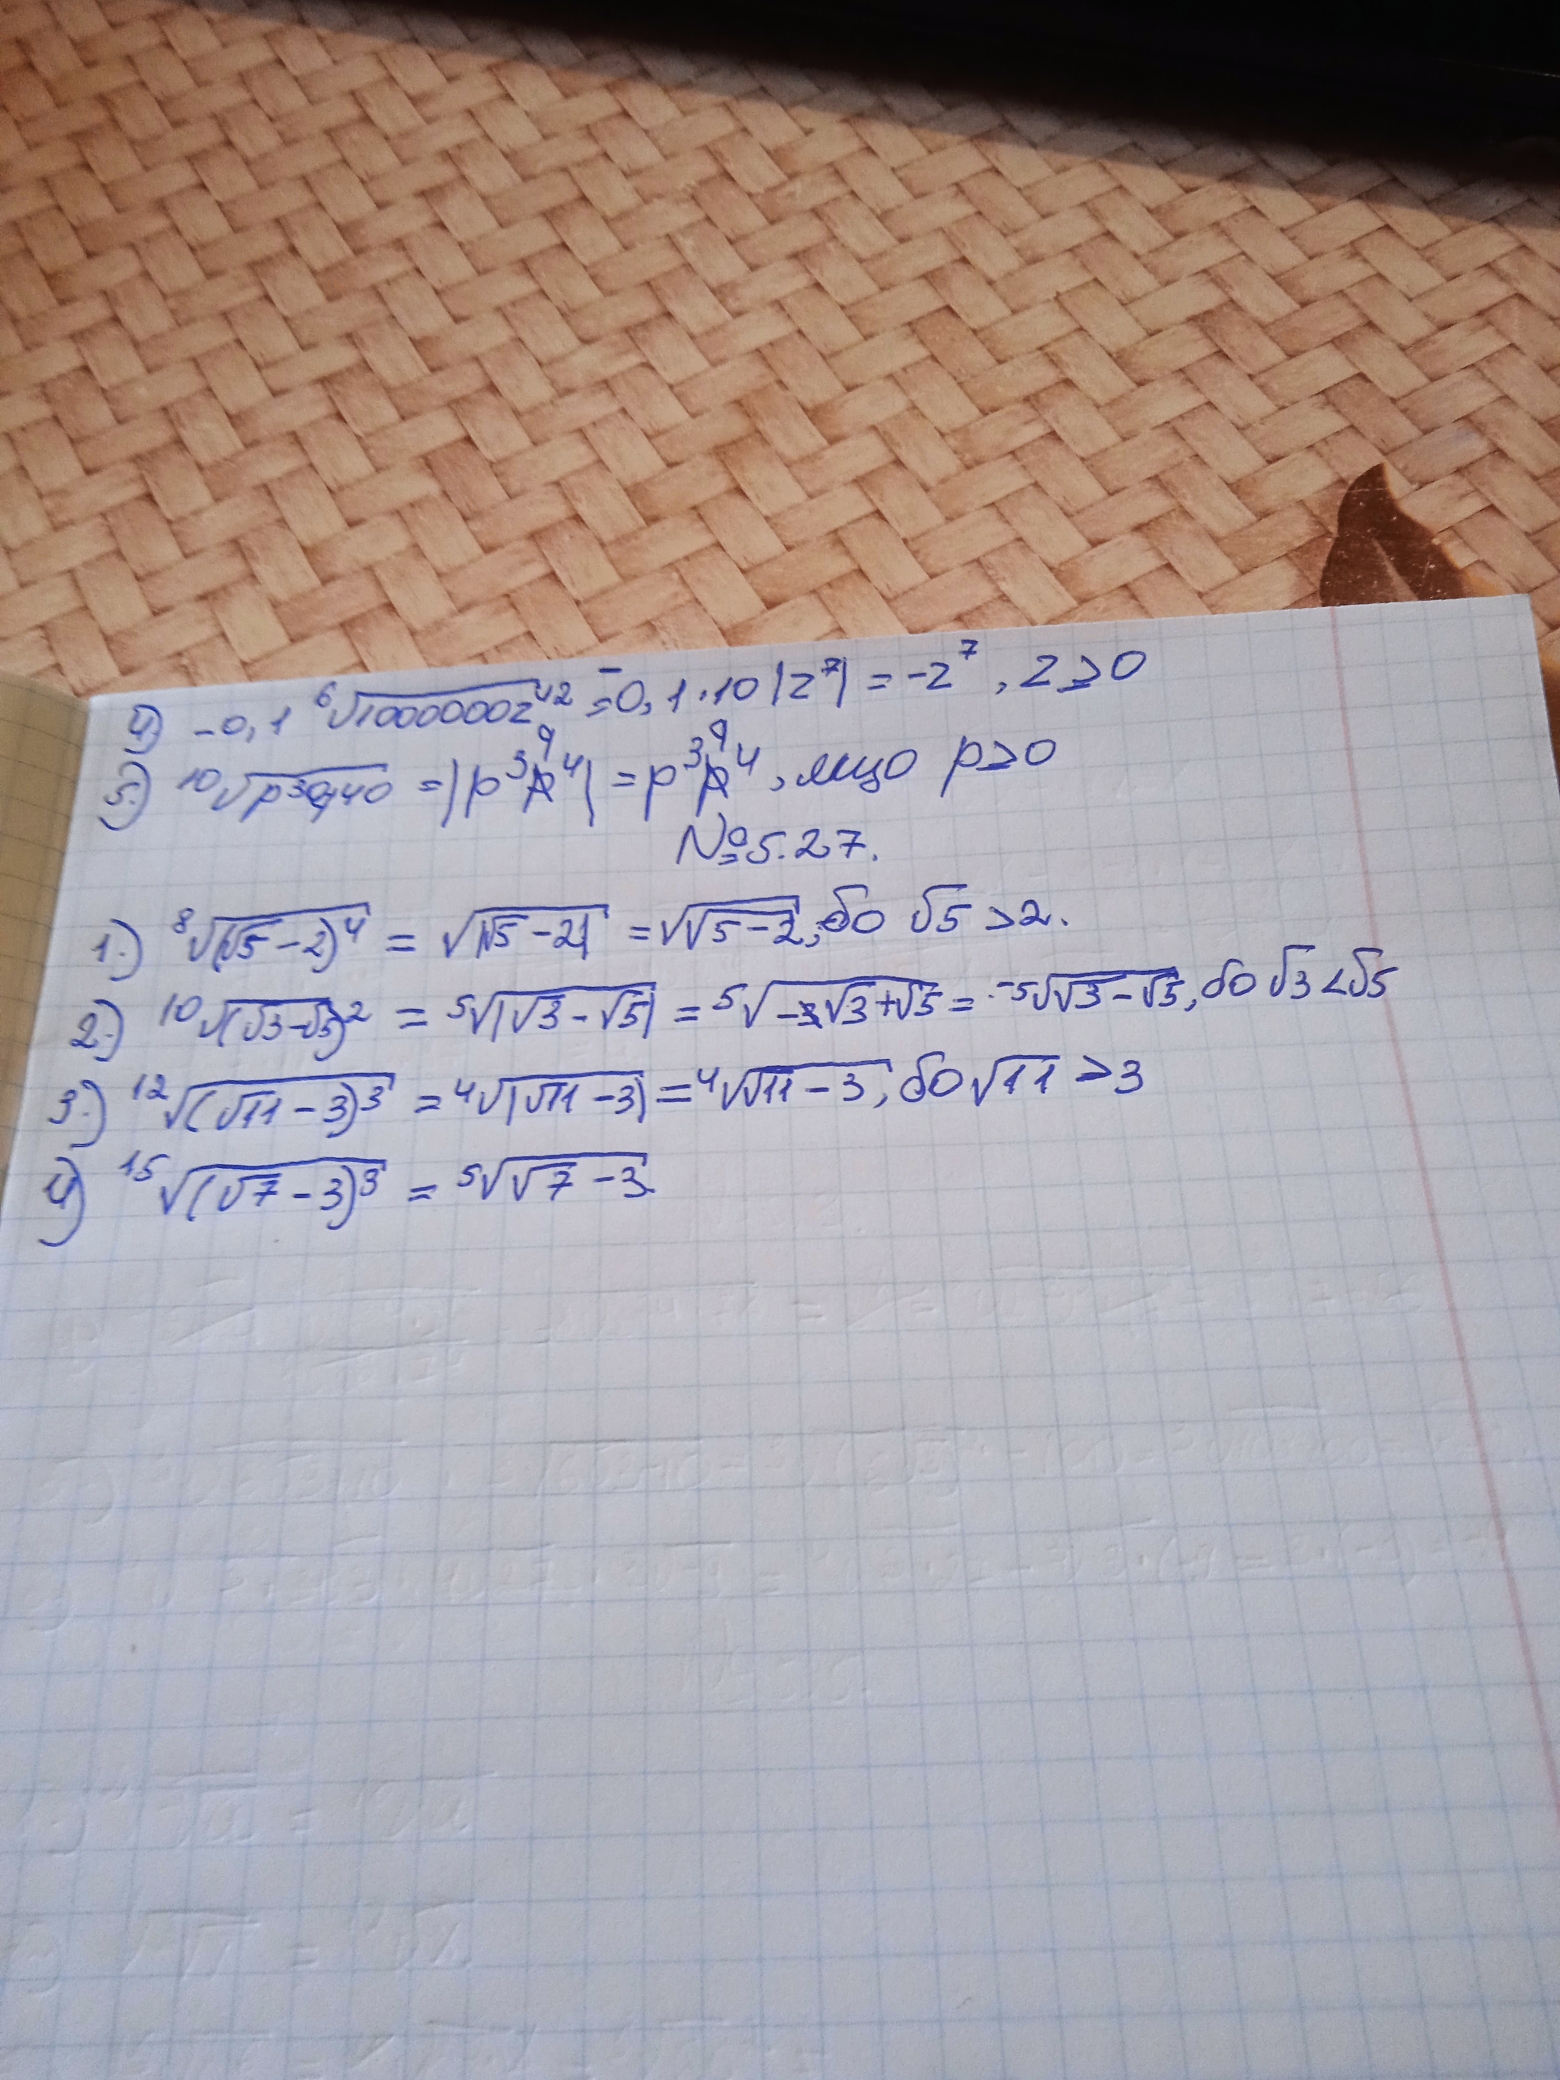 4) -0,1 ⁶√1000000z⁴² = -0,1·10|z⁷| = -z⁷, z≥0
5.) ¹⁰√p³⁰q⁴⁰ = |p³q⁴| = p³q⁴, якщо p≥0
№5.27.
1.) ⁸√(√5-2)⁴ = √|√5-2| = √√5-2, бо √5>2.
2.) ¹⁰√(√3-√5)² = ⁵√|√3-√5| = ⁵√-√3+√5 = -⁵√√3-√5, бо √3<√5
3.) ¹²√(√11-3)³ = ⁴√|√11-3| = ⁴√√11-3, бо √11>3
4) ¹⁵√(√7-3)³ = ⁵√√7-3.